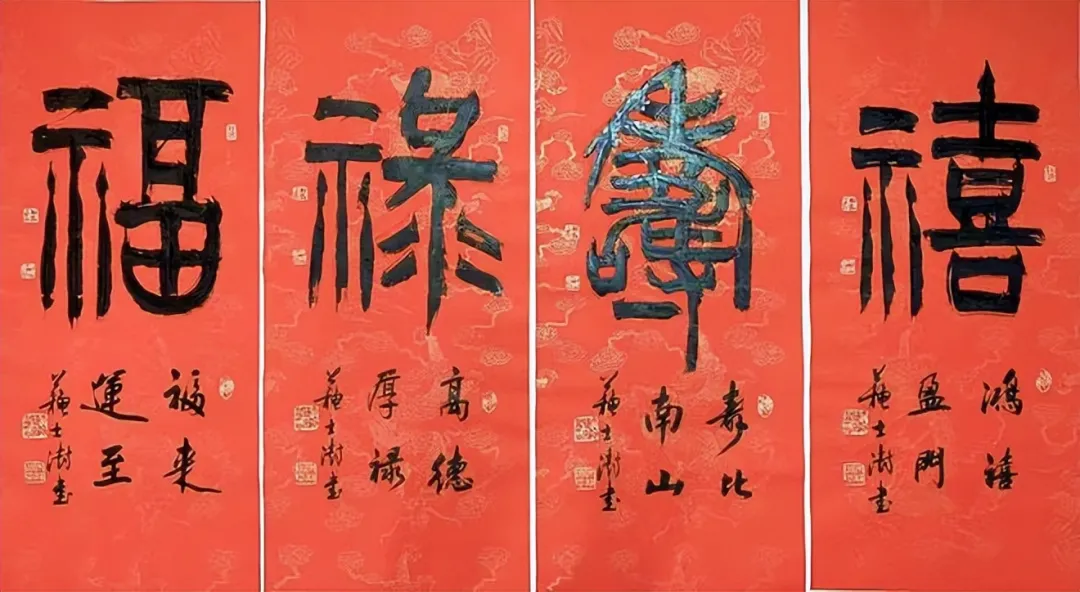 福
福来
運至
蘇士澍書
祿
高德
厚禄
蘇士澍書
壽
壽比
南山
蘇士澍書
禧
鴻禧
盈門
蘇士澍書